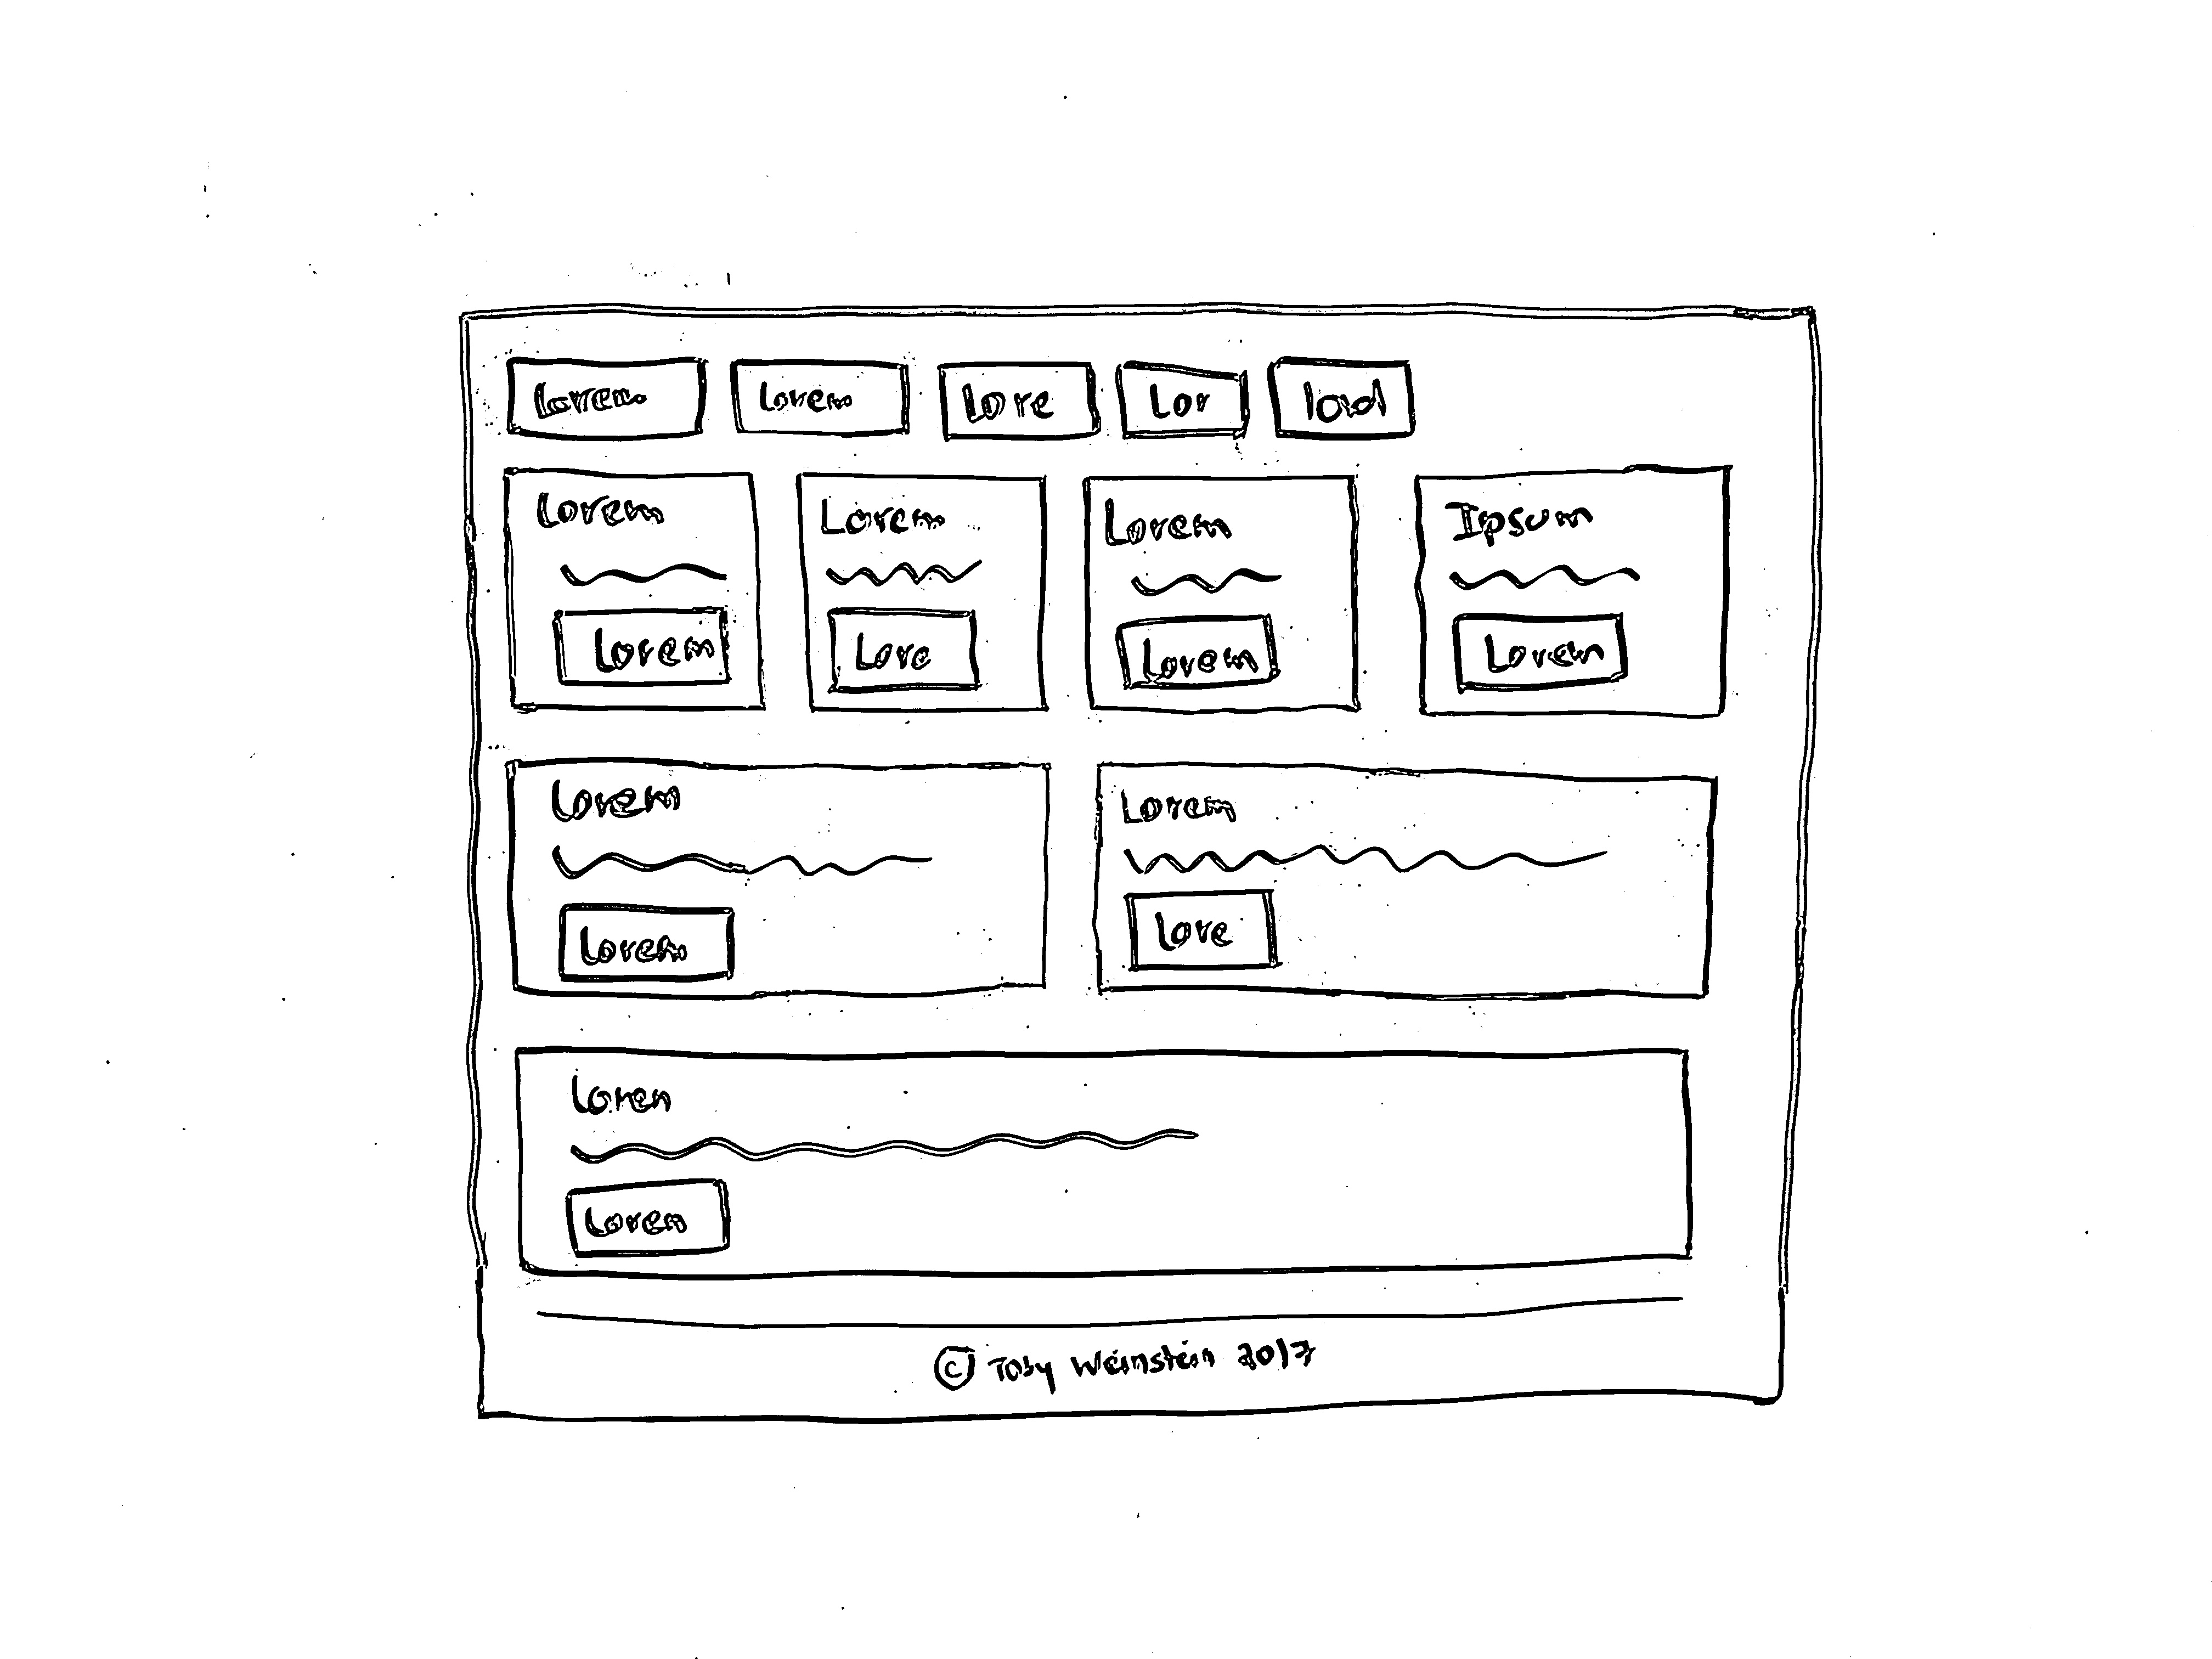 Lorem Lorem Lore Lor load
Lorem Lorem Lorem Ipsum
Lorem Lore Lorem Lorem
Lorem Lorem
Lorem Lore
Loren
Loren
© Toby Weinstein 2017